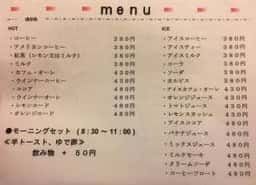 menu
drink
HOT
・コーヒー 380円
・アメリカンコーヒー 380円
・紅茶（レモン又はミルク） 380円
・ミルク 380円
・カフェ・オーレ 430円
・ウインナーコーヒー 430円
・ココア 480円
・ウインナーオーレ 480円
・レモネード 480円
・オレンジエード 480円
●モーニングセット（8:30～11:00）
≪半トースト、ゆで卵≫
飲み物 + 50円
ICE
・アイスコーヒー 380円
・アイスティー 380円
・アイスミルク 380円
・コーラ 380円
・ソーダ 380円
・カルピス 380円
・アイスカフェ・オーレ 430円
・オレンジジュース 430円
・トマトジュース 430円
・レモンスカッシュ 430円
・アイスココア 480円
・バナナジュース 480円
・ミックスジュース 480円
・ミルクセーキ 480円
・クリームソーダ
・コーヒーフロート